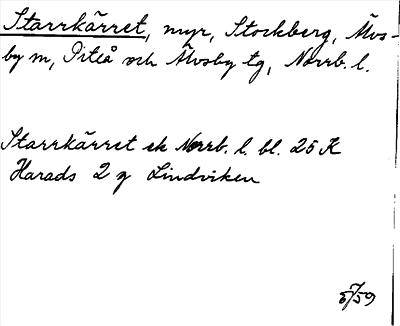 Starrkärret, myr, Storkberg, Älvs-
by m, Piteå och Älvsby tg, Norrb. l.
Starrkärret ek Norrb. l. bl. 25 K
Harads 2 g Lindviken
5/59